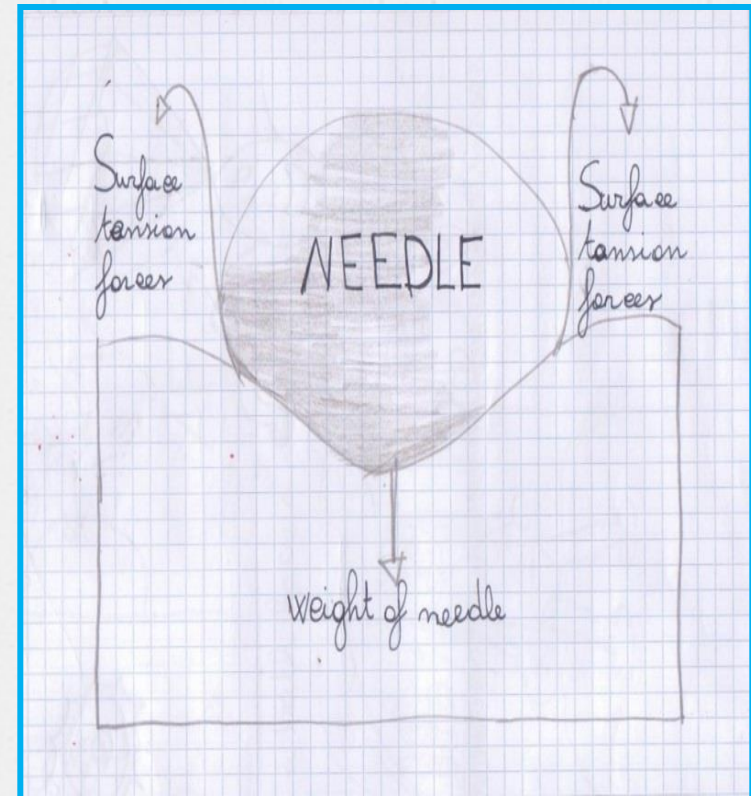 Surface
tansion
forces
NEEDLE
Surface
tansion
forces
weight of needle